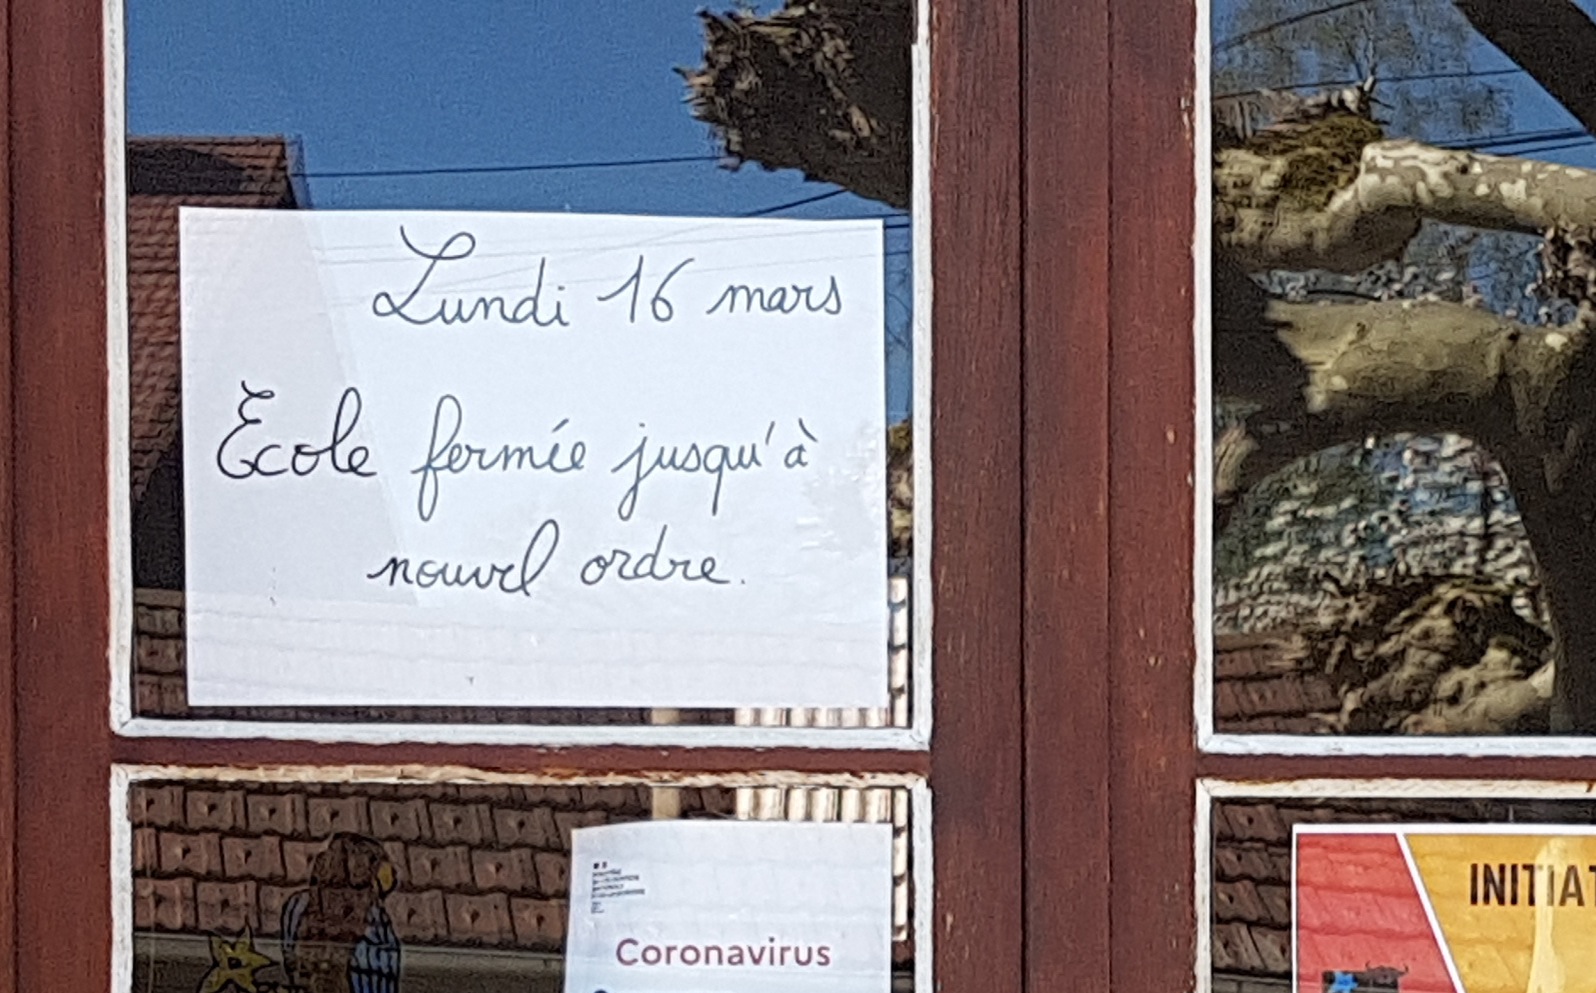 Lundi 16 mars
Ecole fermée jusqu'à
nouvel ordre.
Coronavirus